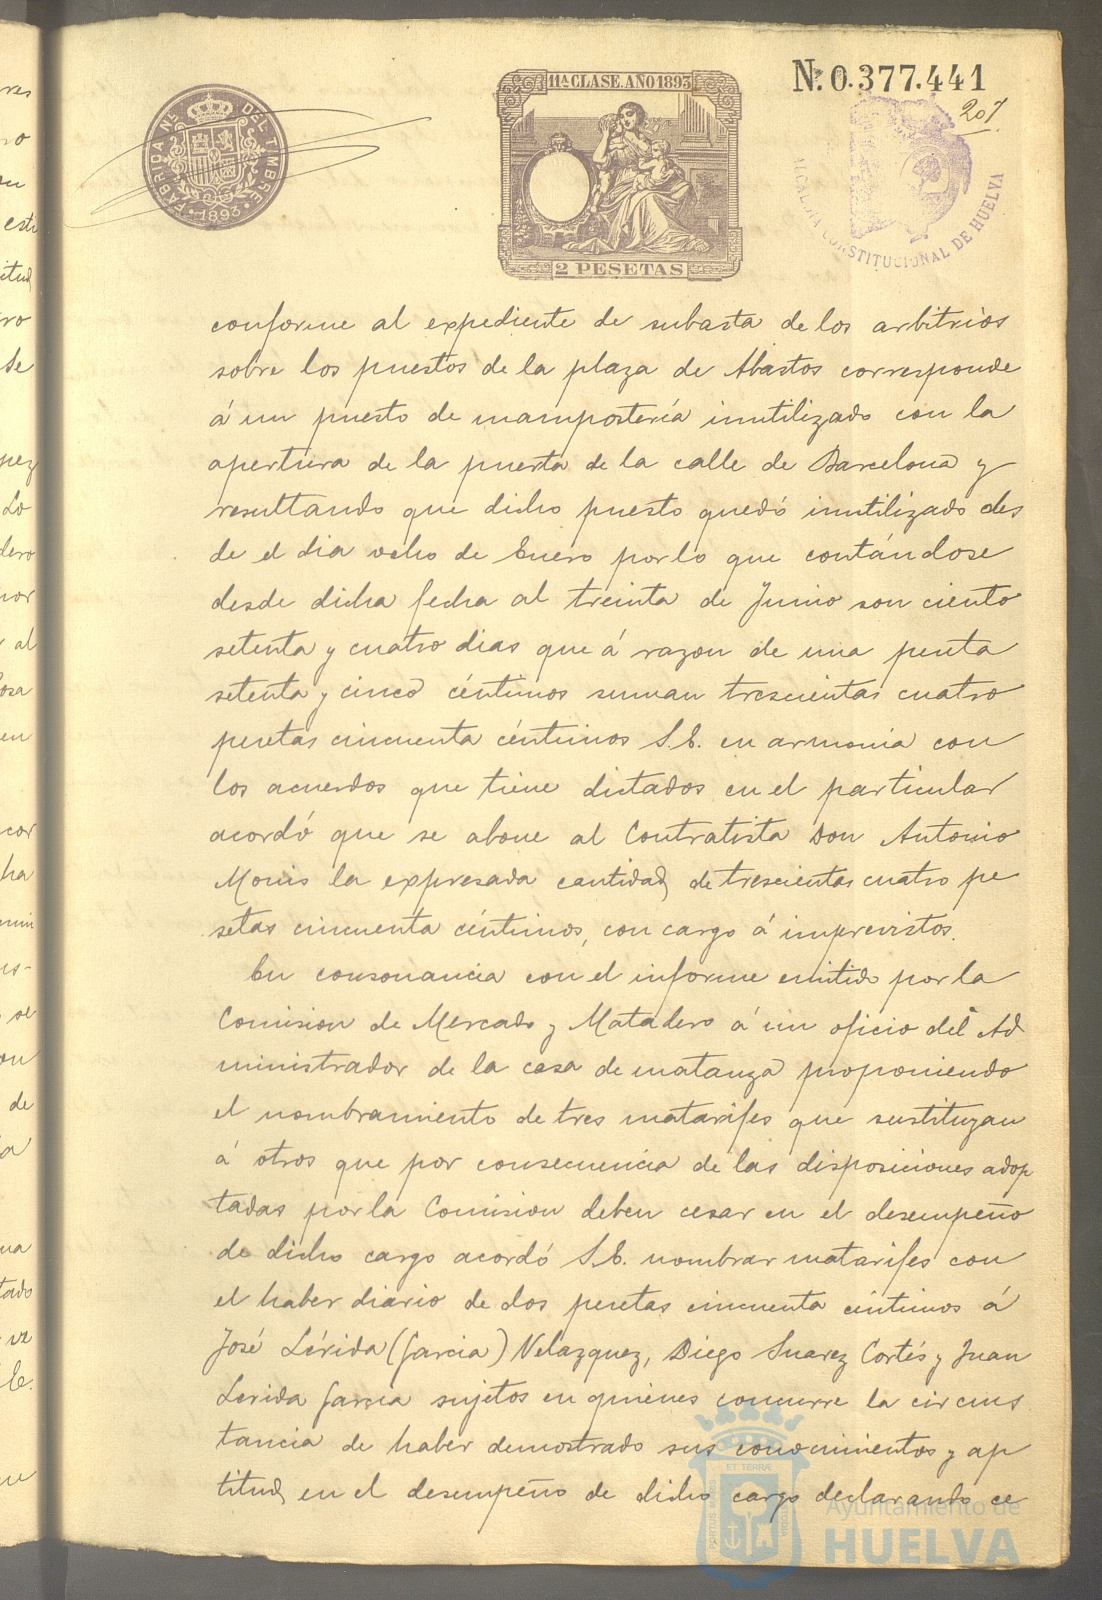 11ª CLASE. AÑO 1893
Nº. 0.377.441
207
FABRICA Nl. DEL TIMBRE
1893
2 PESETAS
ALCALDIA CONSTITUCIONAL DE HUELVA
conforme al expediente de subasta de los arbitrios
sobre los puestos de la plaza de Abastos corresponde
á un puesto de mampostería inutilizado con la
apertura de la puerta de la calle de Barcelona y
resultando que dicho puesto quedó inutilizado des
de el dia ocho de Enero por lo que contándose
desde dicha fecha al treinta de Junio son ciento
setenta y cuatro dias que á razon de una peseta
setenta y cinco céntimos suman trescientas cuatro
pesetas cincuenta céntimos S.E. en armonía con
los acuerdos que tiene dictados en el particular
acordó que se abone al Contratista Don Antonio
la expresada cantidad de trescientas cuatro pe
setas cincuenta céntimos, con cargo á imprevistos.
En consonancia con el informe emitido por la
Comision de Mercado y Matadero á un oficio del Ad
ministrador de la casa de matanza proponiendo
el nombramiento de tres matarifes que sustituyan
á otros que por consecuencia de las disposiciones adop
tadas por la Comision deben cesar en el desempeño
de dicho cargo acordó S.E. nombrar matarifes con
el haber diario de dos pesetas cincuenta céntimos á
José Lérida (Garcia) Velazquez, Diego Suarez Cortés y Juan
Lerida Garcia sujetos en quienes concurre la circuns
tancia de haber demostrado sus conocimientos y ap
titud en el desempeño de dicho cargo declarando ce
Ayuntamiento de
HUELVA